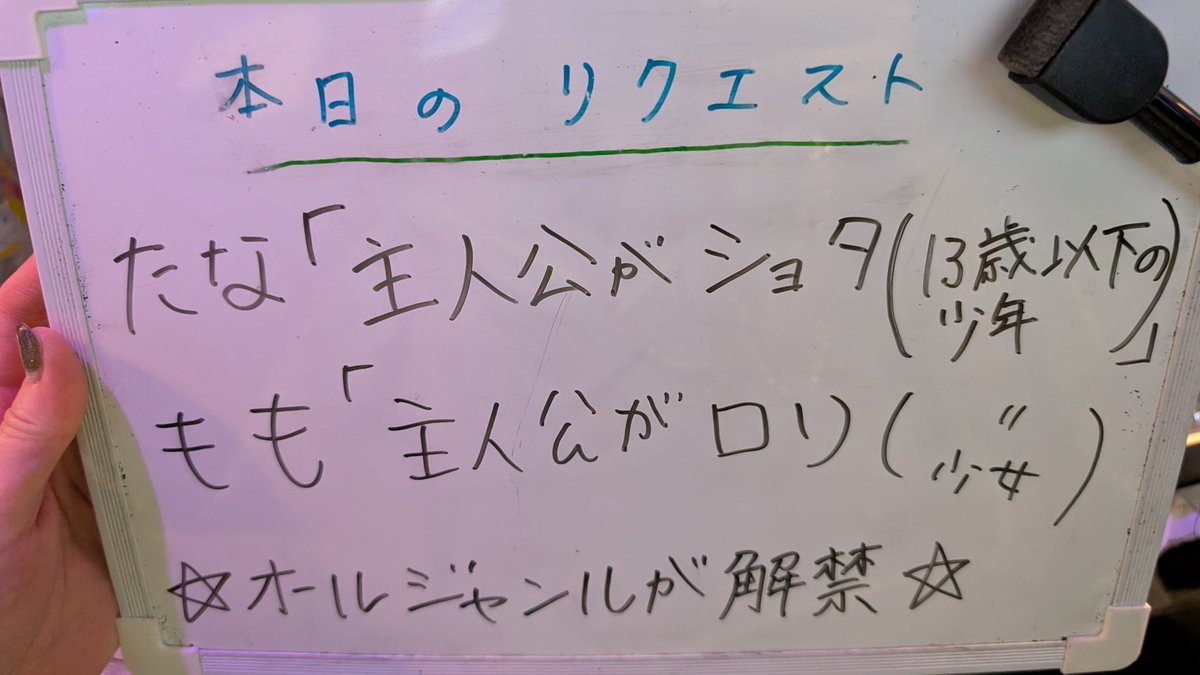 本日のリクエスト
たな「主人公がショタ(13歳以下の少年)」
もも「主人公がロリ(〃少女)
☆オールジャンルが解禁☆